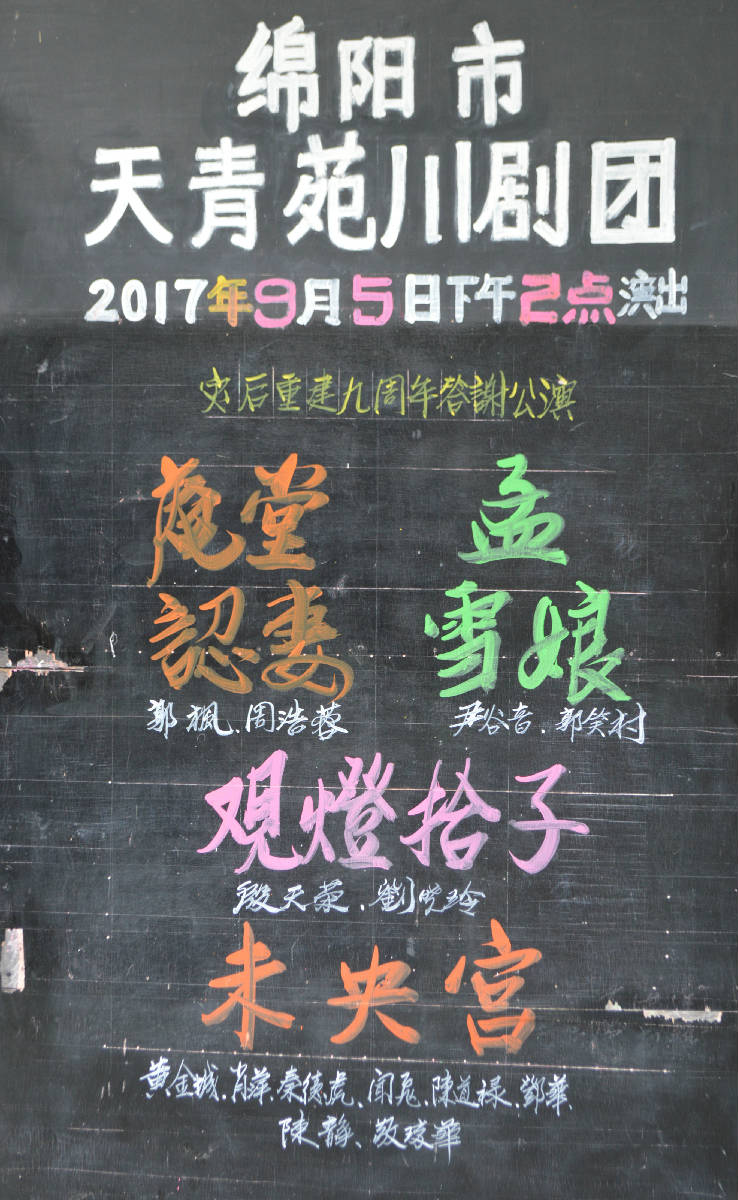 绵阳市
天青苑川剧团
2017年9月5日下午2点演出
灾后重建九周年答謝公演
庵堂
認妻
郭楓、周浩蓉
孟
雪娘
尹谷音、郭笑村
观燈拾子
殷天荣、劉晓玲
未央宫
黄金城、肖萍、秦德虎、闻飛、陳道禄、鄧華
陳静、敬琼華